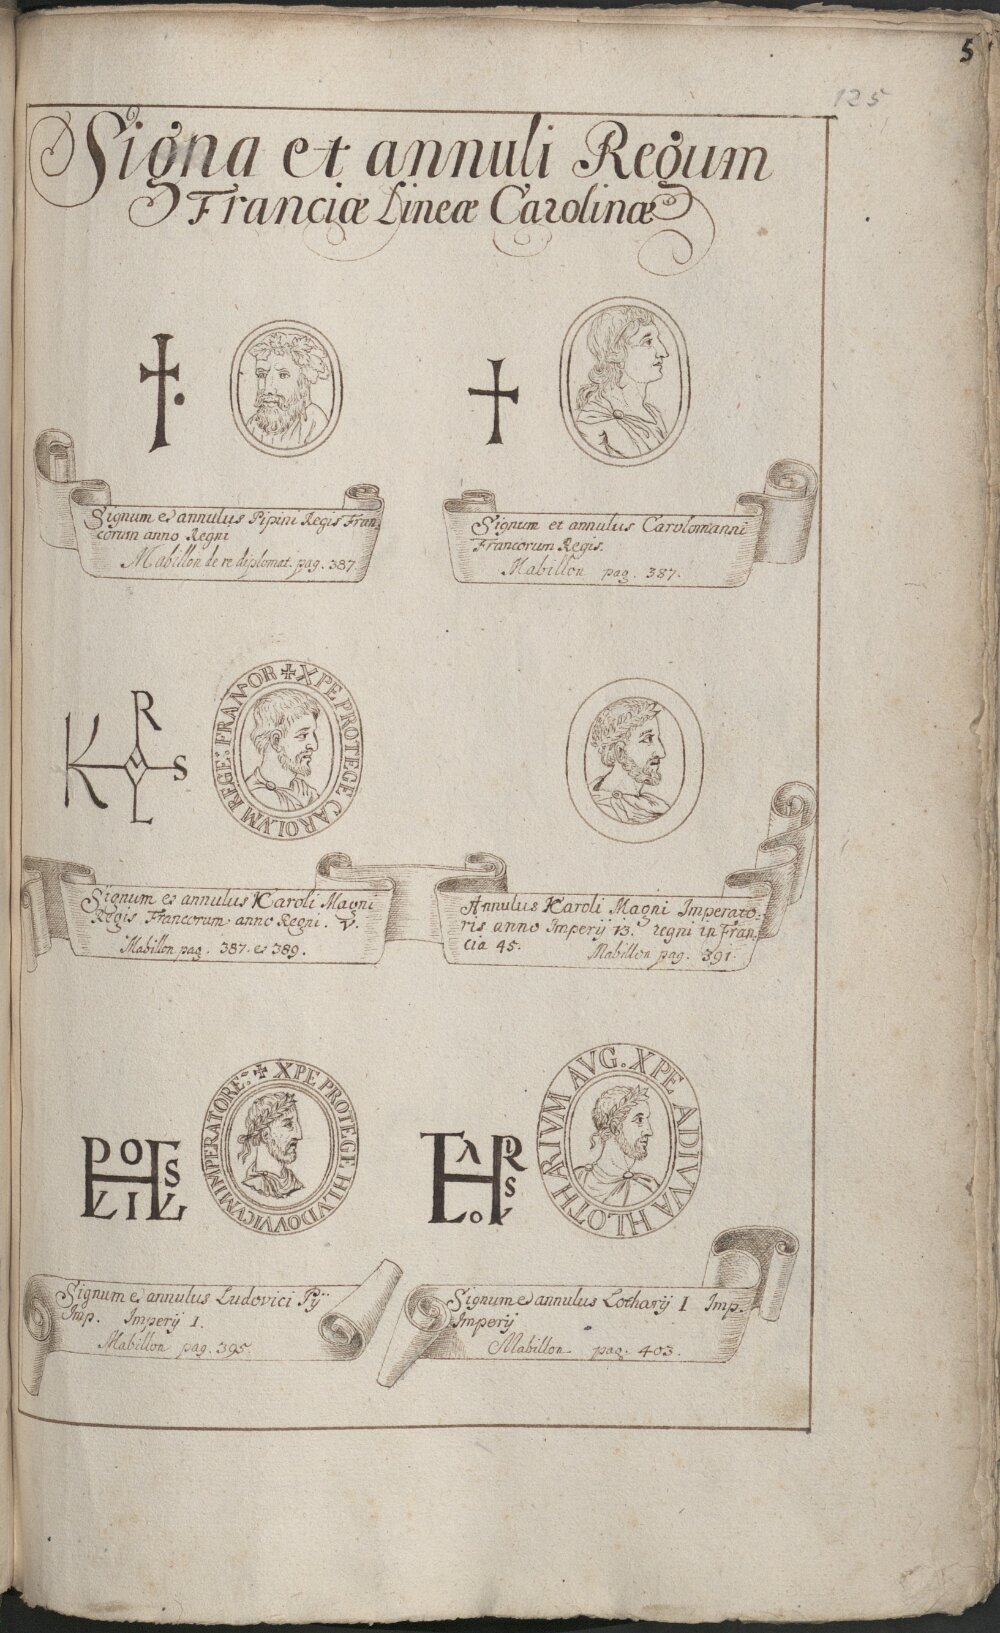 5
125
Signa et annuli Regum
Franciæ Lineæ Carolinæ
Signum et annulus Pipini Regis Fran-
corum anno Regni
Mabillon de re diplomat. pag. 387
Signum et annulus Carolomanni
Francorum Regis.
Mabillon pag. 387.
K R S L
✠ XPE PROTEGE CAROLVM REGE: FRANCOR
Signum et annulus Karoli Magni
Regis Francorum anno Regni. V.
Mabillon pag. 387. et 389.
Annulus Karoli Magni Imperato-
ris anno Imperij 13. regni in Fran-
cia 45. Mabillon pag. 391.
✠ XPE PROTEGE HLVDOVVICVM IMPERATORE:
AVG. XPE ADIVVA HLOTHARIVM
Signum et annulus Ludovici Pij
Imp. Imperij I.
Mabillon pag. 395.
Signum et annulus Lotharij I Imp.
Imperij
Mabillon pag. 403.